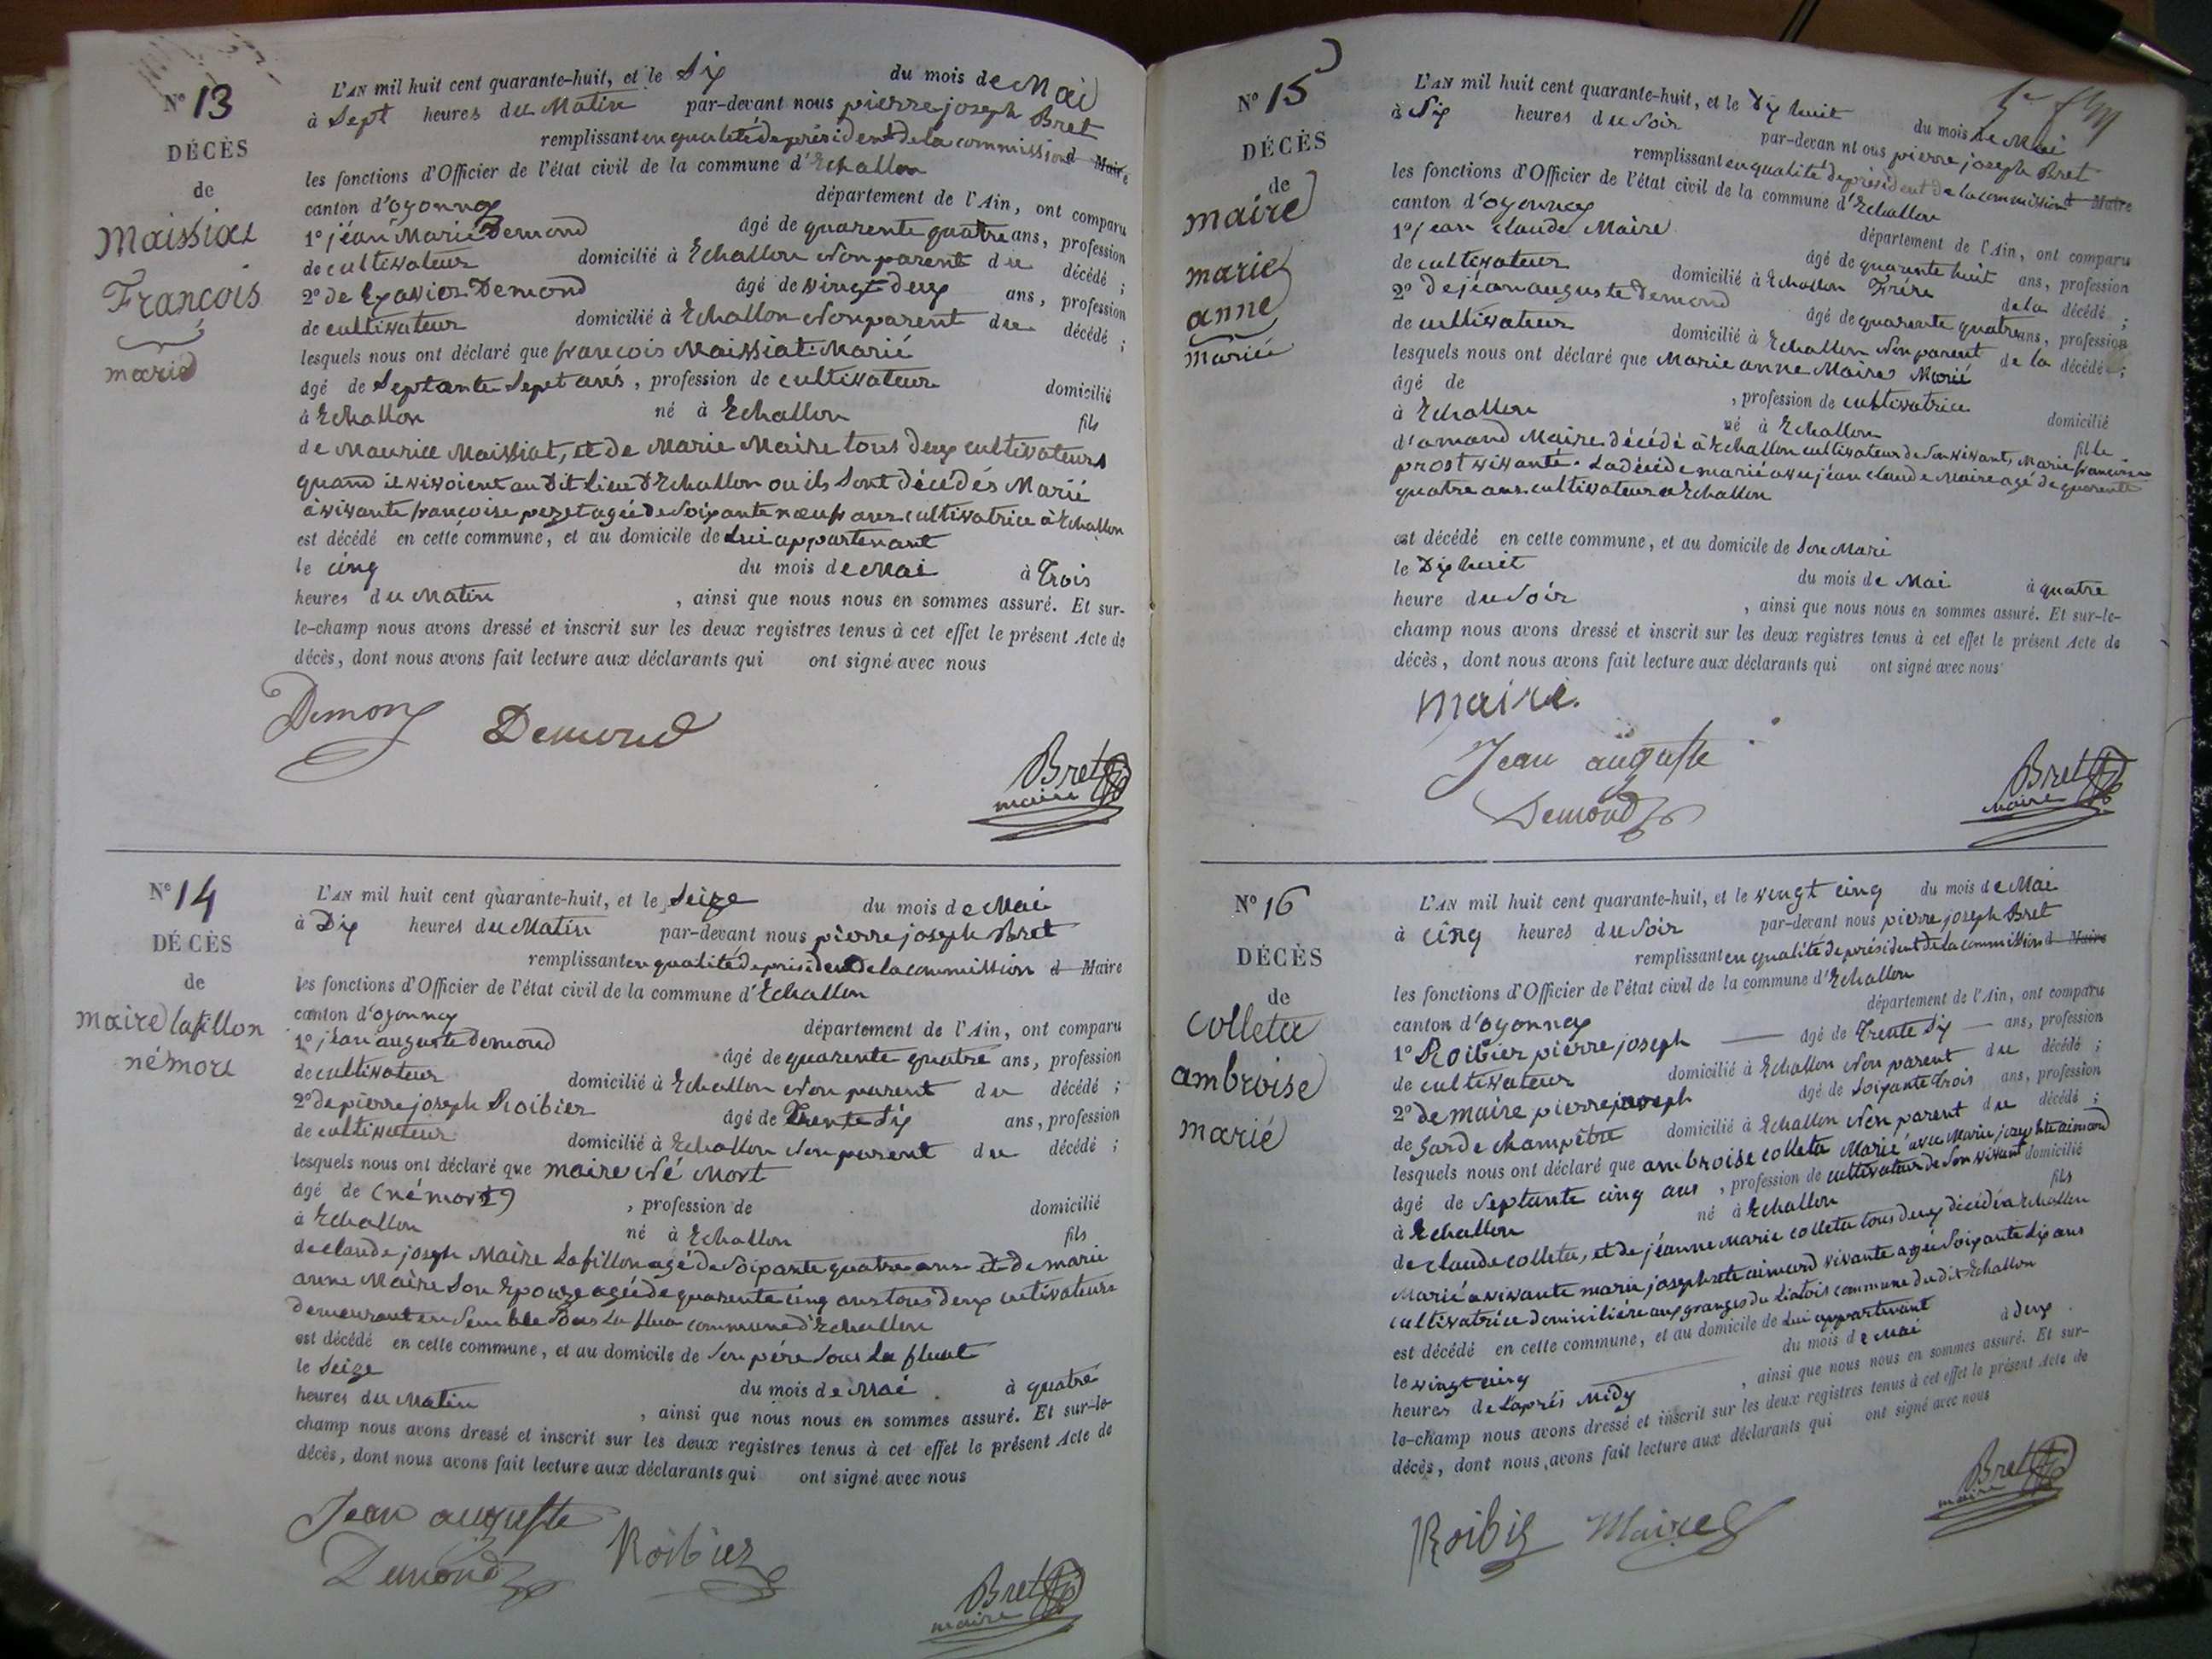 N° 13
DÉCÈS
de
Maissiat
François
marié
L'AN mil huit cent quarante-huit, et le Six du mois de Mai
à Sept heures du Matin par-devant nous pierre joseph Bret
remplissant en qualité de président de la commission d Maire
les fonctions d'Officier de l'état civil de la commune d'Echallon
canton d'oyonnax département de l'Ain, ont comparu
1° jéan Marie Demond âgé de quarente quatre ans, profession
de cultivateur domicilié à Echallon Non parent du décédé ;
2° de Exavier Demond âgé de vingt deux ans, profession
de cultivateur domicilié à Echallon Non parent du décédé ;
lesquels nous ont déclaré que françois Maissiat Marié
âgé de Septante Sept ans, profession de cultivateur domicilié
à Echallon né à Echallon fils
de Maurice Maissiat, et de Marie Maire tous deux cultivateurs
quand il vivoient au Dit lieu D'Echallon ou ils sont décédés Marié
à vivante françoise pezet agée de Soixante nœuf ans cultivatrice à Echallon
est décédé en cette commune, et au domicile de Lui appartenant
le cinq du mois de Mai à Trois
heures du Matin , ainsi que nous nous en sommes assuré. Et sur-
le-champ nous avons dressé et inscrit sur les deux registres tenus à cet effet le présent Acte de
décès, dont nous avons fait lecture aux déclarants qui ont signé avec nous
Demond Demond
Bret
maire
N° 14
DÉCÈS
de
maire lafillon
né mort
L'AN mil huit cent quarante-huit, et le Seize du mois de Mai
à Dix heures du Matin par-devant nous pierre joseph Bret
remplissant en qualité de président de la commission d Maire
les fonctions d'Officier de l'état civil de la commune d'Echallon
canton d'oyonnax département de l'Ain, ont comparu
1° jéan auguste demond âgé de quarente quatre ans, profession
de cultivateur domicilié à Echallon Non parent du décédé ;
2° de pierre joseph Roibier âgé de Trente Six ans, profession
de cultivateur domicilié à Echallon Non parent du décédé ;
lesquels nous ont déclaré que maire Né Mort
âgé de (né mort) , profession de domicilié
à Echallon né à Echallon fils
de claude joseph Maire Lafillon agé de Soixante quatre ans et de marie
anne Maire Son Epouze agée de quarente cinq ans tous deux cultivateurs
demeurant en Semble Sous La fluat commune d'Echallon
est décédé en cette commune, et au domicile de Son pére Sous La fluat
le Seize du mois de Mai à quatre
heures du Matin , ainsi que nous nous en sommes assuré. Et sur-le-
champ nous avons dressé et inscrit sur les deux registres tenus à cet effet le présent Acte de
décès, dont nous avons fait lecture aux déclarants qui ont signé avec nous
Jean auguste
Demond Roibier
Bret
maire
N° 15
DÉCÈS
de
maire
marie
anne
mariée
L'AN mil huit cent quarante-huit, et le Dix huit du mois de Mai
à Six heures du Soir par-devan nt ous pierre joseph Bret
remplissant en qualité de président de la commission d Maire
les fonctions d'Officier de l'état civil de la commune d'Echallon
canton d'oyonnax département de l'Ain, ont comparu
1° jean claude Maire âgé de quarente huit ans, profession
de cultivateur domicilié à Echallon Frère de la décédé ;
2° de jéan auguste Demond âgé de quarente quatre ans, profession
de cultivateur domicilié à Echallon Non parent de la décédé ;
lesquels nous ont déclaré que Marie anne Maire Marié
âgé de , profession de cultivatrice domicilié
à Echallon né à Echallon fille
d'amand Maire décédé à Echallon cultivateur de Son vivant, Marie françoise
prost vivante. La décédé marié avec jéan claude Maire agé de quarente
quatre ans cultivateur a Echallon
est décédé en cette commune, et au domicile de Son Mari
le Dix huit du mois de Mai à quatre
heure du Soir , ainsi que nous nous en sommes assuré. Et sur-le-
champ nous avons dressé et inscrit sur les deux registres tenus à cet effet le présent Acte de
décès, dont nous avons fait lecture aux déclarants qui ont signé avec nous
maire.
Jean auguste
Demond
Bret
Maire
N° 16
DÉCÈS
de
colleta
ambroise
marié
L'AN mil huit cent quarante-huit, et le vingt cinq du mois de Mai
à cinq heures du Soir par-devant nous pierre joseph Bret
remplissant en qualité de président de la commission d Maire
les fonctions d'Officier de l'état civil de la commune d'Echallon
canton d'oyonnax département de l'Ain, ont comparu
1° Roibier pierre joseph âgé de Trente Six ans, profession
de cultivateur domicilié à Echallon Non parent du décédé ;
2° de maire pierre joseph âgé de Soixante Trois ans, profession
de Garde champêtre domicilié à Echallon Non parent du décédé ;
lesquels nous ont déclaré que ambroise colleta Marié avec Marie josephte aimond
âgé de Septante cinq ans , profession de cultivateur de Son vivant domicilié
à Echallon né à Echallon fils
de claude colleta, et de jéanne Marie colleta tous deux décédé a Echallon
Marié a vivante marie josephte aimond vivante agée Soixante Six ans
cultivatrice domiciliére aux granges du Liatois commune du dit Echallon
est décédé en cette commune, et au domicile de Lui appartenant
le vingt cinq du mois de Mai à deux
heures de L'aprés Midy , ainsi que nous nous en sommes assuré. Et sur-
le-champ nous avons dressé et inscrit sur les deux registres tenus à cet effet le présent Acte de
décès, dont nous avons fait lecture aux déclarants qui ont signé avec nous
Roibier Maire
Bret
maire